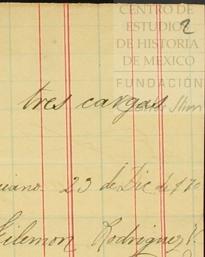 CENTRO DE
ESTUDIOS
DE HISTORIA
DE MEXICO
FUNDACIÓN
2
tres cargas
23 de Dic de
Filemon Rodriguez V.